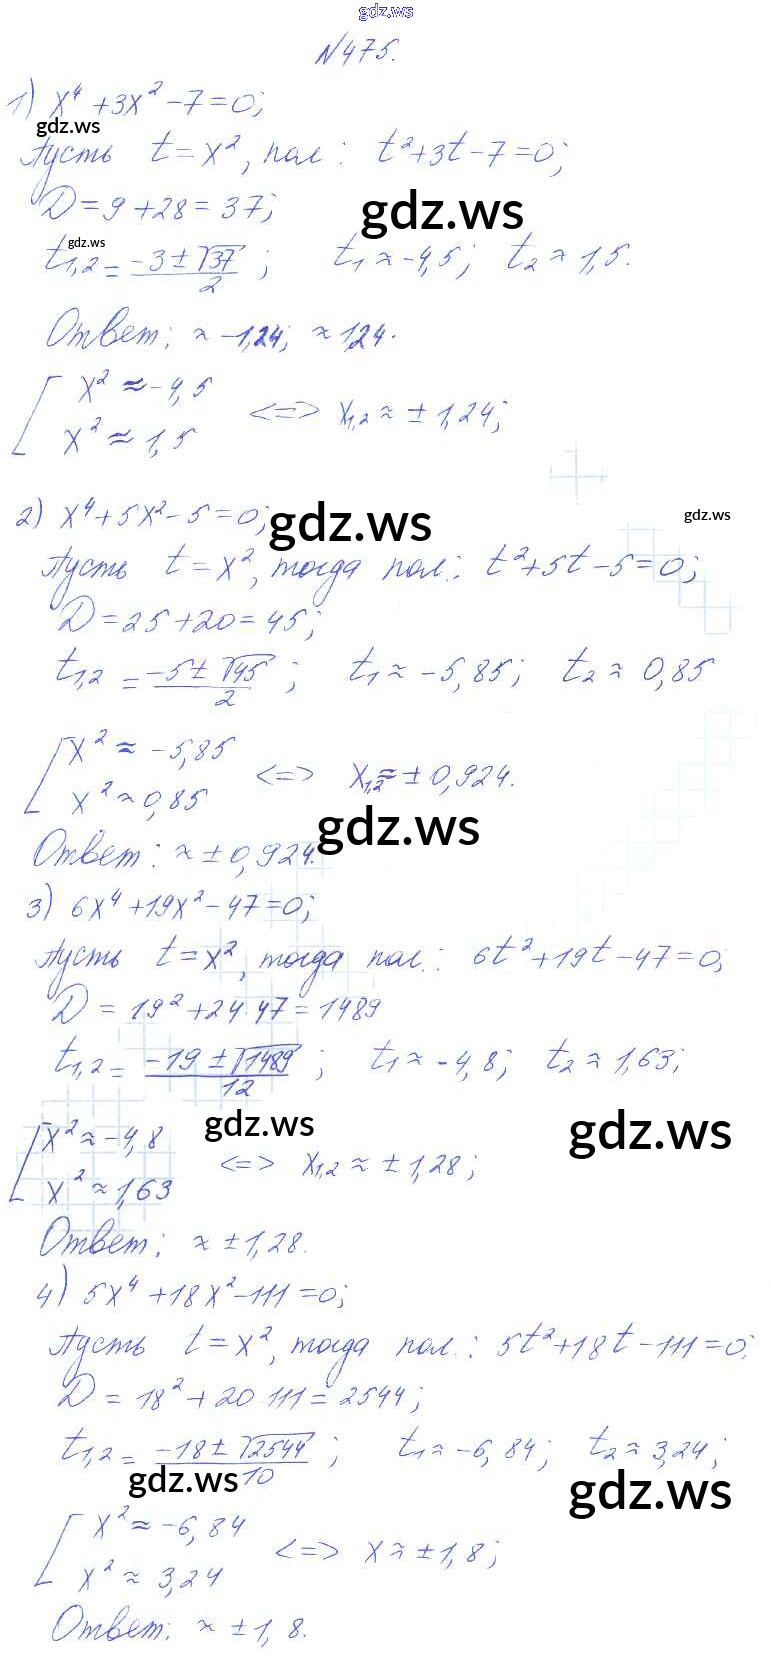 gdz.ws
№475.
1) x⁴ + 3x² - 7 = 0;
gdz.ws
Пусть t = x², пол: t² + 3t - 7 = 0;
D = 9 + 28 = 37;
gdz.ws
gdz.ws
t₁,₂ = (-3 ± √37)/2; t₁ ≈ -4,5; t₂ ≈ 1,5.
Ответ: ≈ -1,24; ≈ 1,24.
[ x² ≈ -4,5
x² ≈ 1,5 <=> x₁,₂ ≈ ± 1,24;
2) x⁴ + 5x² - 5 = 0;
gdz.ws
gdz.ws
Пусть t = x², тогда пол.: t² + 5t - 5 = 0;
D = 25 + 20 = 45;
t₁,₂ = (-5 ± √45)/2; t₁ ≈ -5,85; t₂ ≈ 0,85
[ x² ≈ -5,85
x² ≈ 0,85 <=> x₁,₂ ≈ ± 0,924.
gdz.ws
Ответ: ≈ ± 0,924.
3) 6x⁴ + 19x² - 47 = 0;
Пусть t = x², тогда пол.: 6t² + 19t - 47 = 0;
D = 19² + 24·47 = 1489
t₁,₂ = (-19 ± √1489)/12; t₁ ≈ -4,8; t₂ ≈ 1,63;
gdz.ws
gdz.ws
[ x² ≈ -4,8
x² ≈ 1,63 <=> x₁,₂ ≈ ± 1,28;
Ответ: ≈ ± 1,28.
4) 5x⁴ + 18x² - 111 = 0;
Пусть t = x², тогда пол.: 5t² + 18t - 111 = 0;
D = 18² + 20·111 = 2544;
t₁,₂ = (-18 ± √2544)/10; t₁ ≈ -6,84; t₂ ≈ 3,24;
gdz.ws
gdz.ws
[ x² ≈ -6,84
x² ≈ 3,24 <=> x ≈ ± 1,8;
Ответ: ≈ ± 1,8.